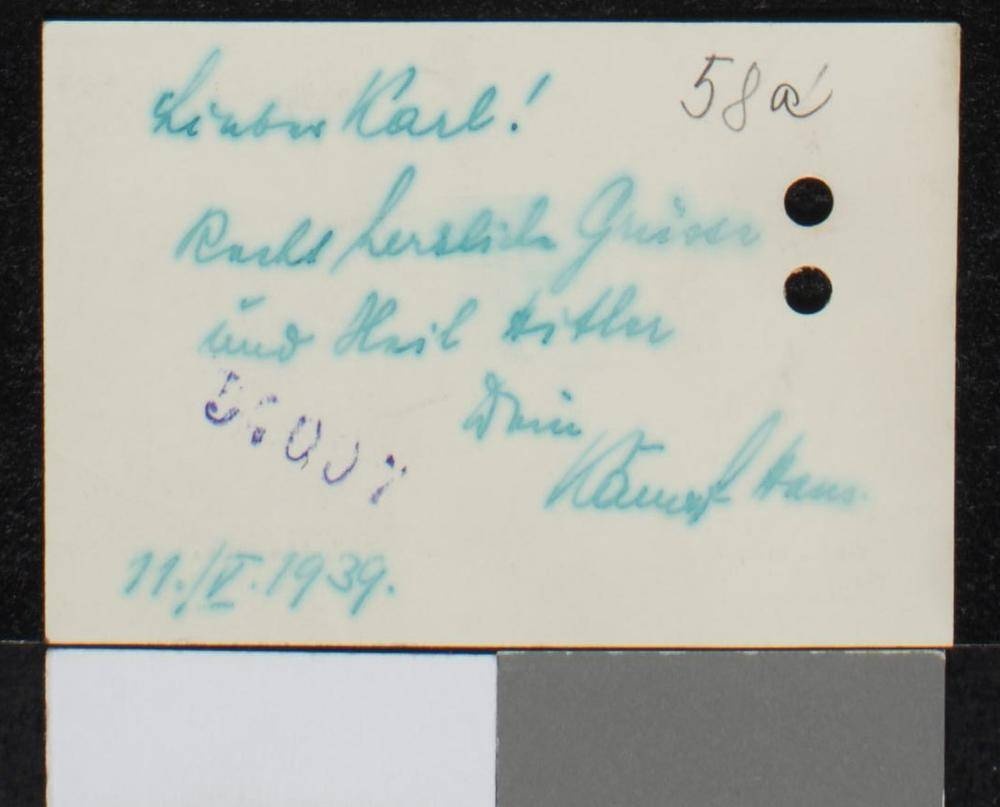 Lieber Karl!
58a
Recht herzliche Grüsse
und Heil Hitler
Dein
Hans
11./V.1939.